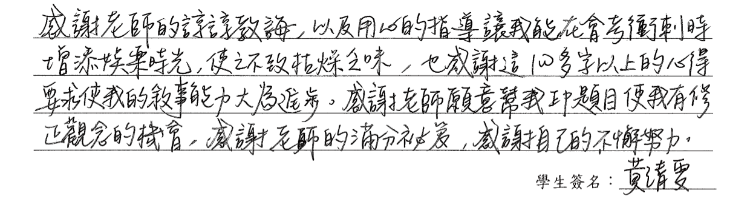 感謝老師的諄諄教誨，以及用心的指導讓我能在會考衝刺時
增添娛樂時光，使之不致枯燥乏味，也感謝這100多字以上的心得
要求使我的敘事能力大為進步。感謝老師願意幫我印題目使我有修
正觀念的機會，感謝老師的滿分祕笈，感謝自己的不懈努力。
學生簽名：黃清雯